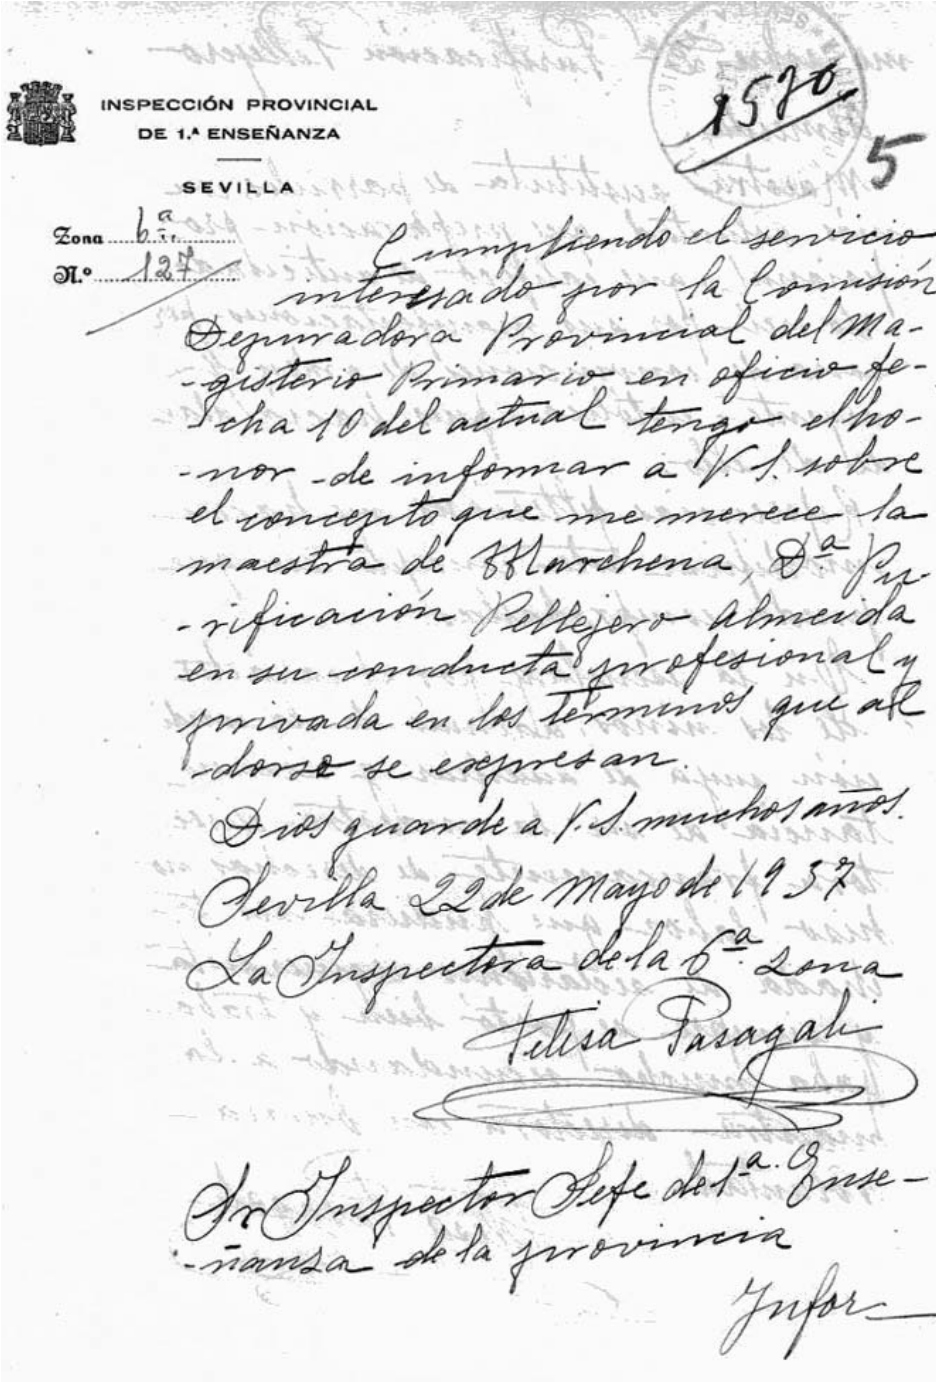 INSPECCIÓN PROVINCIAL
DE 1.ª ENSEÑANZA
SEVILLA
1570
5
Zona 6ª
N.º 127
Cumpliendo el servicio
interesado por la Comisión
Depuradora Provincial del Ma-
-gisterio Primario en oficio fe-
cha 10 del actual tengo el ho-
-nor de informar a V.S. sobre
el concepto que me merece la
maestra de Marchena, Dª Pu-
-rificación Pellejero Almeida
en su conducta profesional y
privada en los términos que al
dorso se expresan.
Dios guarde a V.S. muchos años.
Sevilla 22 de Mayo de 1937
La Inspectora de la 6ª zona
Felisa Pasagali
Sr Inspector Jefe de 1ª. Ense-
-ñanza de la provincia
Infor-